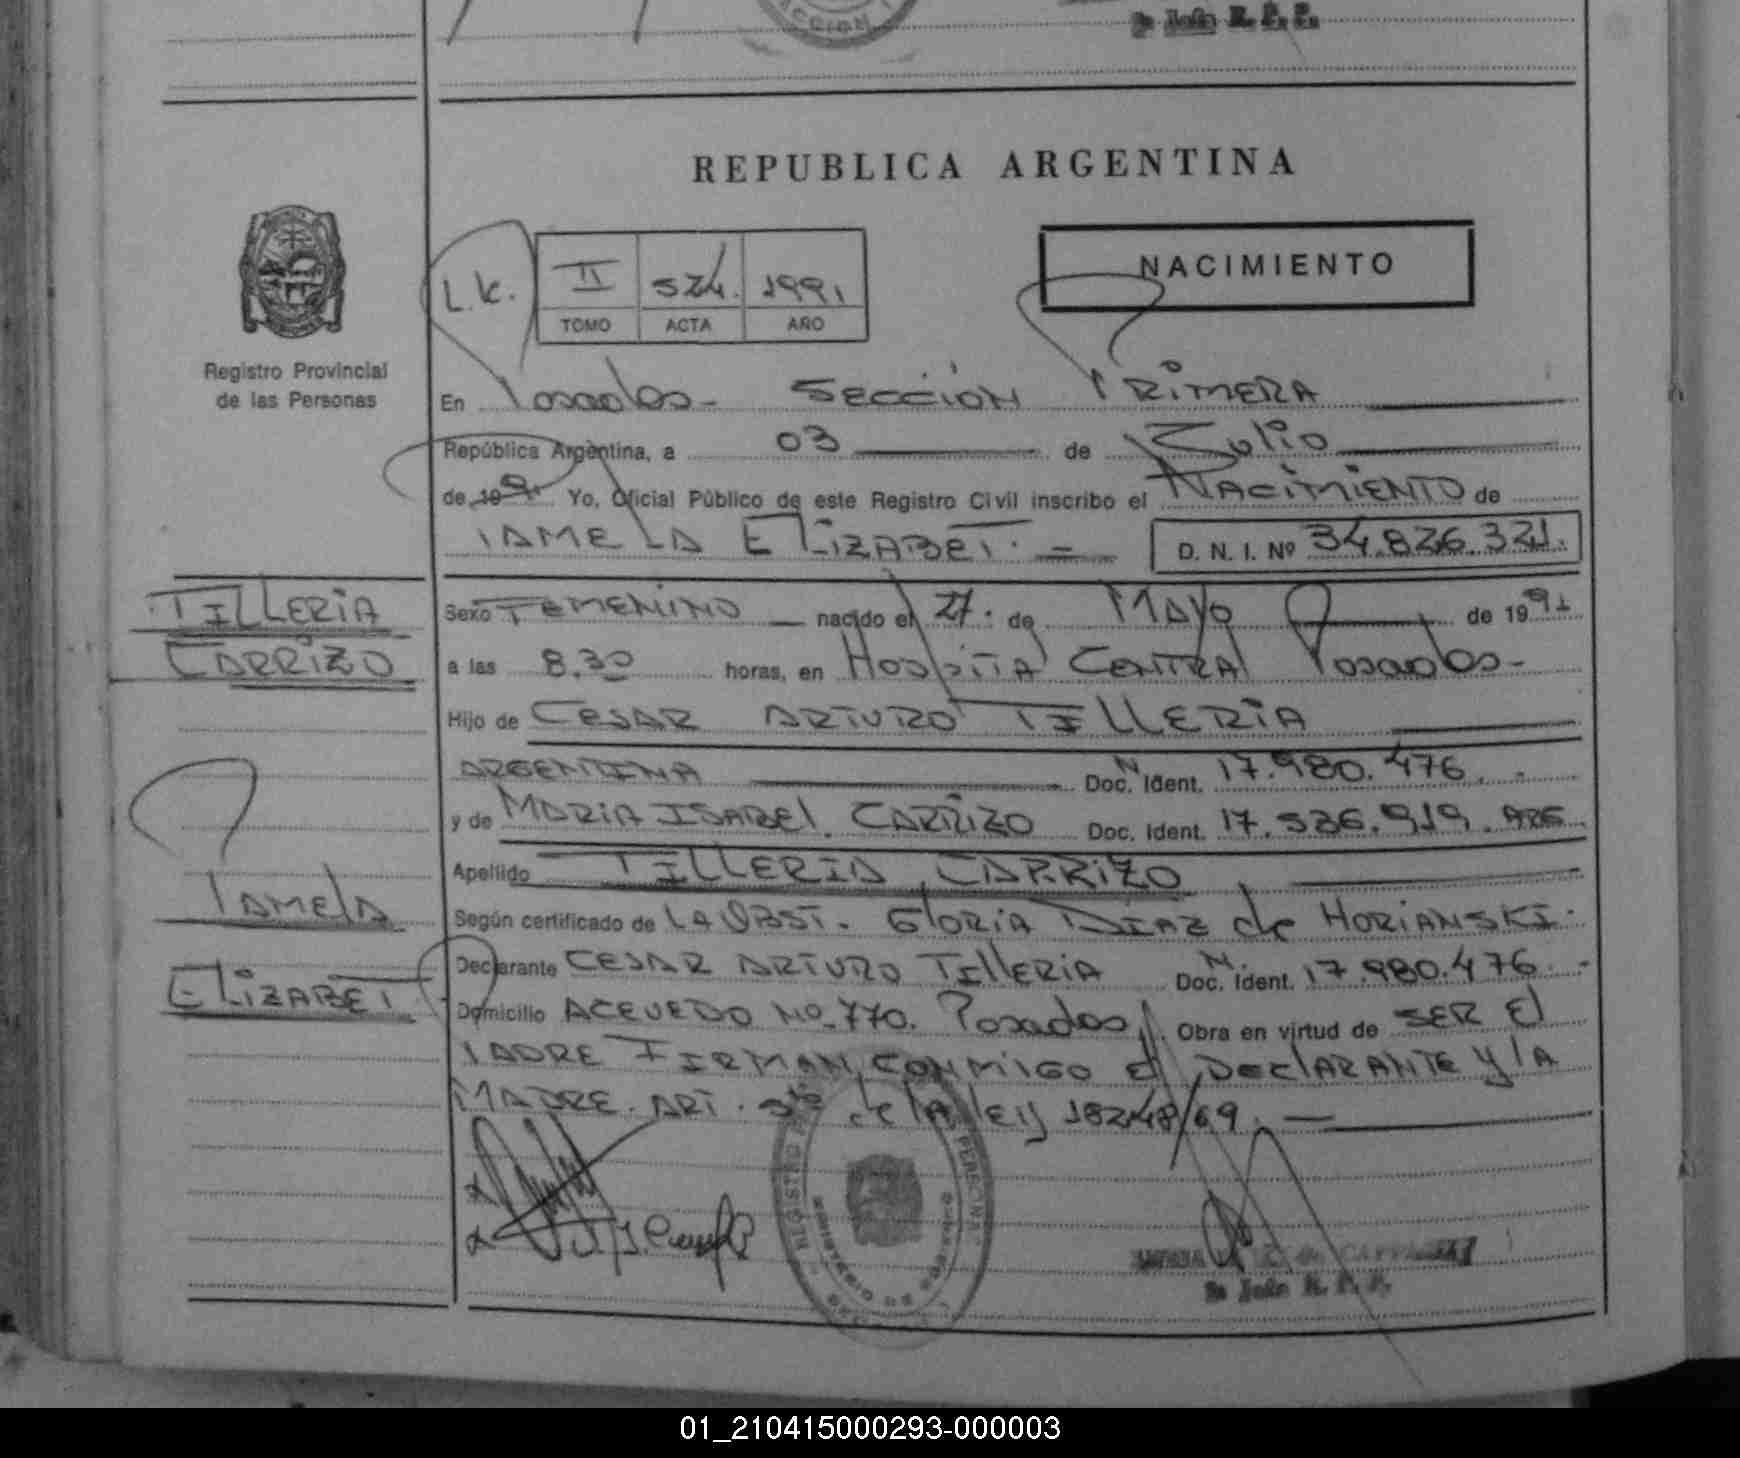 CCION
Jefe R. P. P.
REPUBLICA ARGENTINA
NACIMIENTO
L.K. II 524. 1991
TOMO ACTA AÑO
Registro Provincial
de las Personas
En Posadas - SECCION PRIMERA
República Argentina, a 03 de Julio
de 1991 Yo, Oficial Público de este Registro Civil inscribo el NACIMIENTO de
PAMELA ELIZABET. = D. N. I. Nº 34.826.321.
TILLERIA
CARRIZO
Sexo FEMENINO nacido el 27. de MAYO de 1991
a las 8.30 horas, en HOSPITAL CENTRAL Posadas-
Hijo de CESAR ARTURO TILLERIA
ARGENTINA Doc. Ident. N 17.980.476. -
y de MARIA ISABEL CARRIZO Doc. Ident. 17.536.919. ARG.
Apellido TILLERIA CARRIZO
PAMELA
ELIZABET
Según certificado de LA OBST. GLORIA DIAZ de HORIANSKI.
Declarante CESAR ARTURO TILLERIA Doc. Ident. N. 17.980.476. -
Domicilio ACEVEDO Nº 770. Posados, Obra en virtud de SER El
PADRE FIRMAN CONMIGO El DEClARANTE y lA
MADRE. ART. 5to de lA ley 18248/69. —
REGISTRO PERSONAS
Jefe R. P. P.
01_210415000293-000003